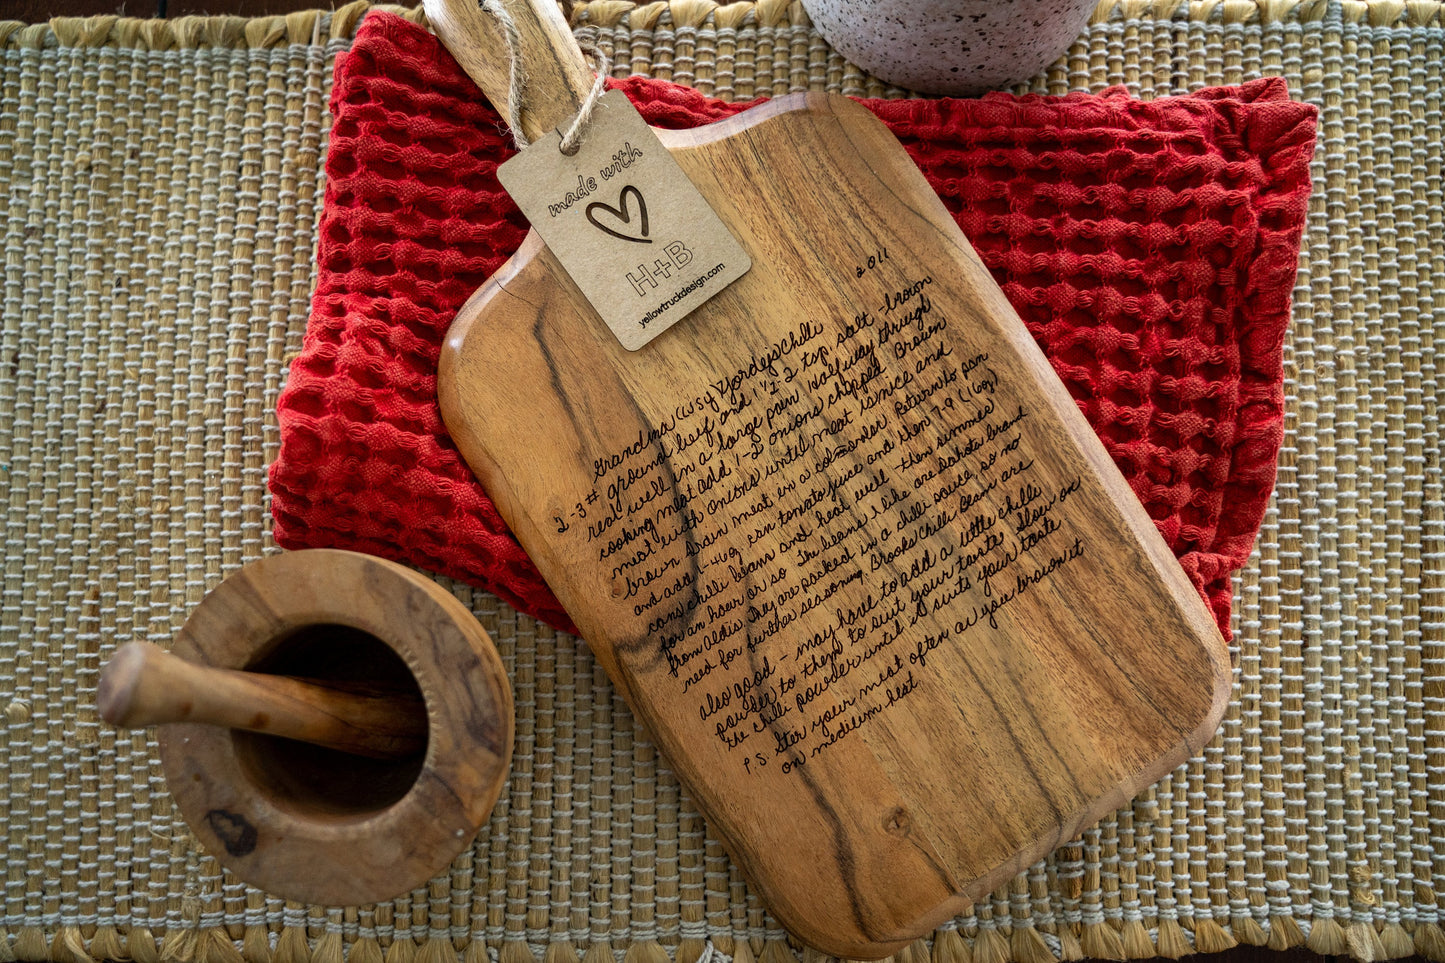 made with
H+B
yellowtruckdesign.com
2011
Grandma (Wsy) Yordejs Chili
2-3# ground beef and 1 1/2-2 tsp salt - brown
real well in a large pan Halfway through
cooking meat add 1-2 onions chopped Brown
meat with onions until meat is nice and
brown Drain meat in a colander Return to pan
and add 1-46oz can tomato juice and then 7-9 (16oz)
cans chilli beans and heat well - then simmer
for an hour or so. The beans I like are Dakota brand
from aldis. They are packed in a chilli sauce, so no
need for further seasoning. Brooks Chilli Beans are
also good - may have to add a little chilli
powder to them to suit your taste Slow on
the chilli powder until it suits your taste
P.S. Ster your meat often as you brown it
on medium heat